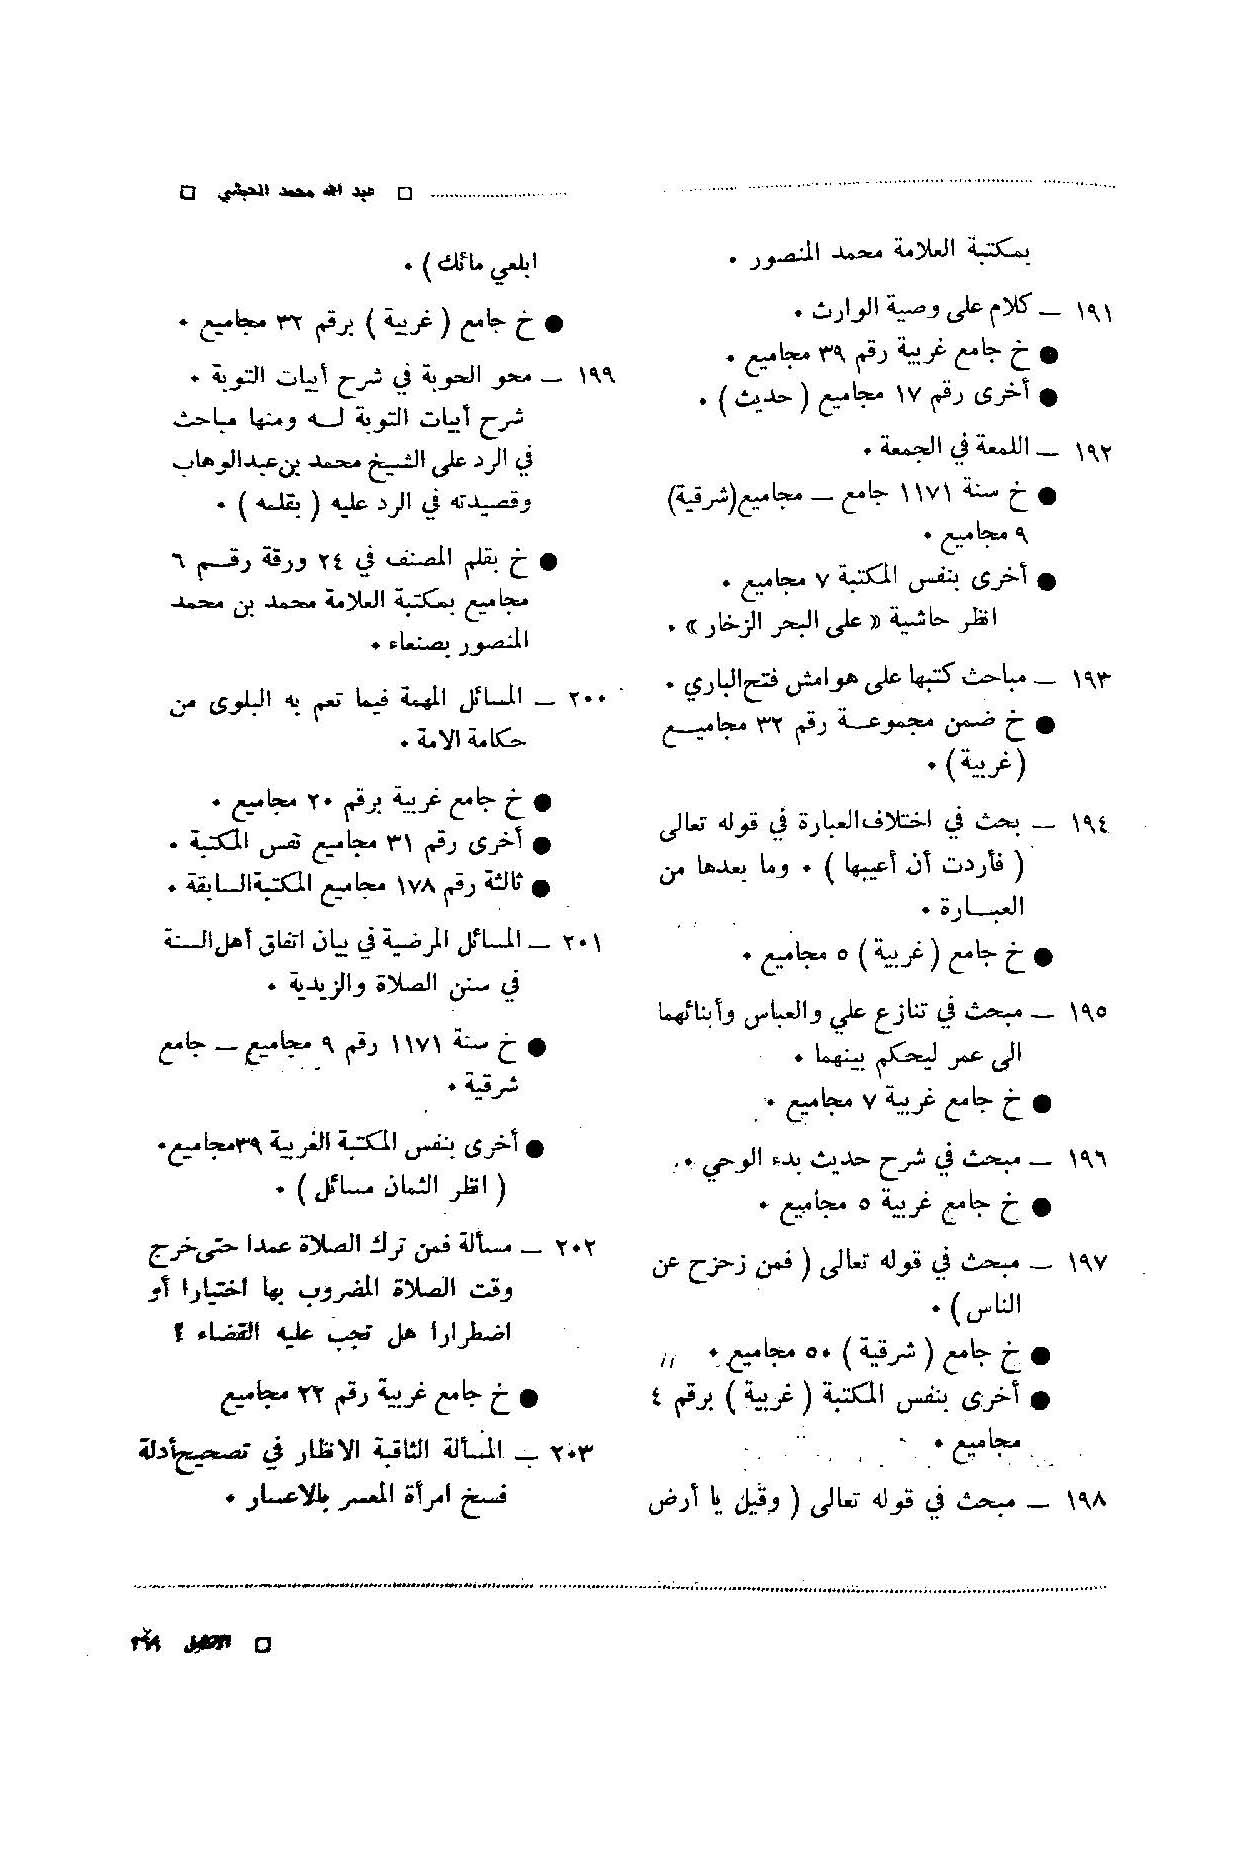 □ عبد الله محمد الحبشي □
بمكتبة العلامة محمد المنصور ٠
١٩١ — كلام على وصية الوارث ٠
● خ جامع غربية رقم ٣٩ مجاميع ٠
● أخرى رقم ١٧ مجاميع ( حديث ) ٠
١٩٢ — اللمعة في الجمعة ٠
● خ سنة ١١٧١ جامع — مجاميع(شرقية)
٩ مجاميع ٠
● أخرى بنفس المكتبة ٧ مجاميع ٠
انظر حاشية « على البحر الزخار » ٠
١٩٣ — مباحث كتبها على هوامش فتح الباري ٠
● خ ضمن مجموعة رقم ٣٢ مجاميع
(غربية) ٠
١٩٤ — بحث في اختلاف العبارة في قوله تعالى
( فأردت أن أعيبها ) ٠ وما بعدها من
العبارة ٠
● خ جامع (غربية) ٥ مجاميع ٠
١٩٥ — مبحث في تنازع علي والعباس وأبنائهما
الى عمر ليحكم بينهما ٠
● خ جامع غربية ٧ مجاميع ٠
١٩٦ — مبحث في شرح حديث بدء الوحي ٠
● خ جامع غربية ٥ مجاميع ٠
١٩٧ — مبحث في قوله تعالى ( فمن زحزح عن
الناس) ٠
● خ جامع ( شرقية ) ٥٠ مجاميع ٠
● أخرى بنفس المكتبة ( غربية ) برقم ٤
مجاميع ٠
١٩٨ — مبحث في قوله تعالى ( وقيل يا أرض
ابلعي مائك) ٠
● خ جامع ( غربية ) برقم ٣٢ مجاميع ٠
١٩٩ — محو الحوبة في شرح أبيات التوبة ٠
شرح أبيات التوبة له ومنها مباحث
في الرد على الشيخ محمد بن عبدالوهاب
وقصيدته في الرد عليه ( بقلمه ) ٠
● خ بقلم المصنف في ٢٤ ورقة رقم ٦
مجاميع بمكتبة العلامة محمد بن محمد
المنصور بصنعاء ٠
٢٠٠ — المسائل المهمة فيما تعم به البلوى من
حكامة الامة ٠
● خ جامع غربية برقم ٢٠ مجاميع ٠
● أخرى رقم ٣١ مجاميع نفس المكتبة ٠
● ثالثة رقم ١٧٨ مجاميع المكتبة السابقة ٠
٢٠١ — المسائل المرضية في بيان اتفاق أهل السنة
في سنن الصلاة والزيدية ٠
● خ سنة ١١٧١ رقم ٩ مجاميع — جامع
شرقية ٠
● أخرى بنفس المكتبة الغربية ٣٩مجاميع٠
( انظر الثمان مسائل ) ٠
٢٠٢ — مسألة فمن ترك الصلاة عمدا حتى خرج
وقت الصلاة المضروب بها اختيارا أو
اضطرارا هل تجب عليه القضاء ؟
● خ جامع غربية رقم ٢٢ مجاميع
٢٠٣ — المسألة الثاقبة الانظار في تصحيح أدلة
فسخ امرأة المعسر بالاعسار ٠
□ الاكليل